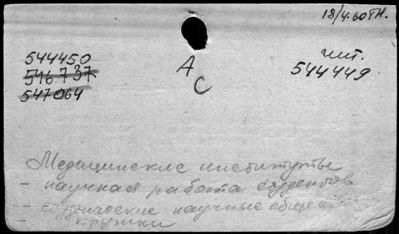 18/4.60тн.
544450
чит.
546737
544449
547064
А
С
Медицинские институты
- научная работа студентов
- студенческие научные общества
кружки